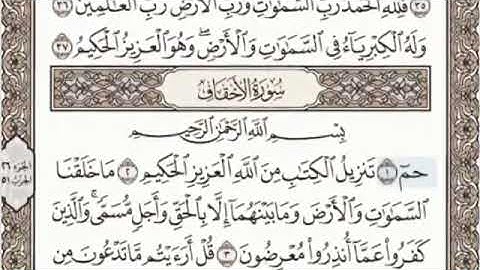 ٣٥ فَلِلَّهِ ٱلْحَمْدُ رَبِّ ٱلسَّمَٰوَٰتِ وَرَبِّ ٱلْأَرْضِ رَبِّ ٱلْعَٰلَمِينَ ٣٦
وَلَهُ ٱلْكِبْرِيَآءُ فِى ٱلسَّمَٰوَٰتِ وَٱلْأَرْضِ ۖ وَهُوَ ٱلْعَزِيزُ ٱلْحَكِيمُ ٣٧
سُورَةُ الأَحْقَافِ
بِسْمِ ٱللَّهِ ٱلرَّحْمَٰنِ ٱلرَّحِيمِ
حمٓ ١ تَنزِيلُ ٱلْكِتَٰبِ مِنَ ٱللَّهِ ٱلْعَزِيزِ ٱلْحَكِيمِ ٢ مَا خَلَقْنَا
ٱلسَّمَٰوَٰتِ وَٱلْأَرْضَ وَمَا بَيْنَهُمَآ إِلَّا بِٱلْحَقِّ وَأَجَلٍ مُّسَمًّى ۚ وَٱلَّذِينَ
كَفَرُوا۟ عَمَّآ أُنذِرُوا۟ مُعْرِضُونَ ٣ قُلْ أَرَءَيْتُم مَّا تَدْعُونَ مِن
الجزء ٢٦
الحزب ٥١